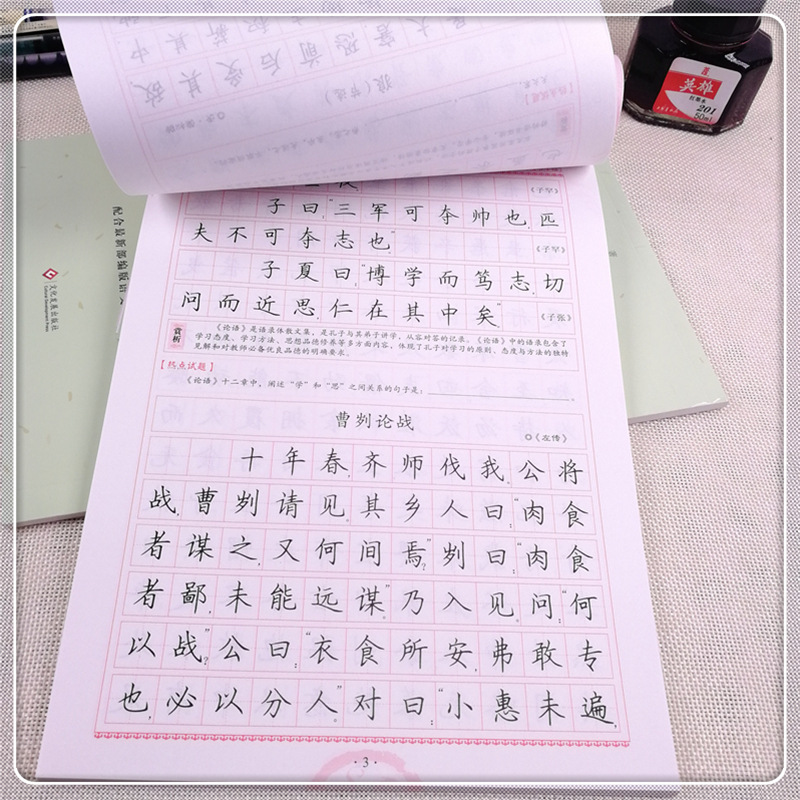 子曰：“三军可夺帅也，匹
夫不可夺志也。”
（子罕）
子夏曰：“博学而笃志，切
问而近思，仁在其中矣。”
（子张）
赏析
《论语》是语录体散文集，是孔子与其弟子讲学，从容对答的记录。《论语》中的语录包含了
学习态度、学习方法、思想品德修养等多方面内容，体现了孔子对学习的原则、态度与方法的独特
见解和对教师必备优良品德的明确要求。
【热点试题】
《论语》十二章中，阐述“学”和“思”之间关系的句子是：________。
曹刿论战
◎《左传》
十年春，齐师伐我。公将
战，曹刿请见。其乡人曰：“肉食
者谋之，又何间焉？”刿曰：“肉食
者鄙，未能远谋。”乃入见。问：“何
以战？”公曰：“衣食所安，弗敢专
也，必以分人。”对曰：“小惠未遍，
·3·
英雄
红墨水
201
50ml
配合最新部编版语文
文化发展出版社
Cultural Development Press